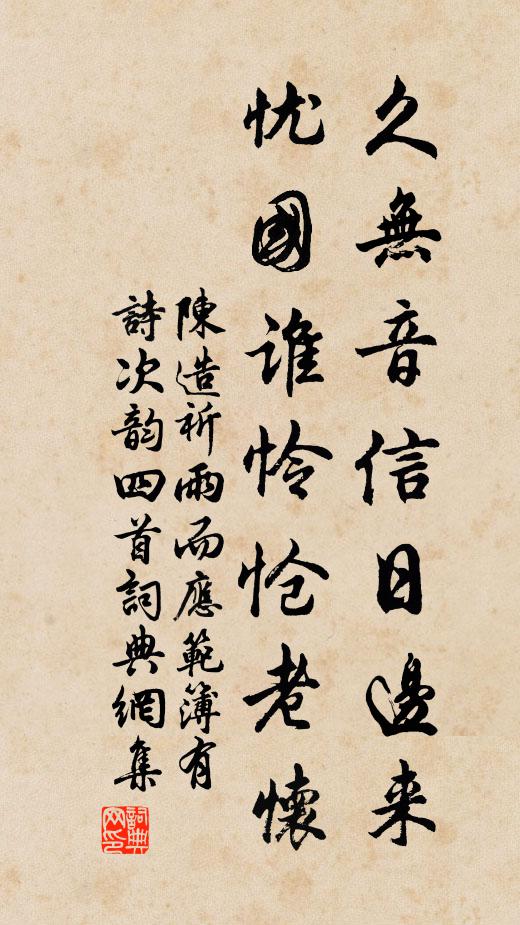 久無音信日邊来
忧國誰怜怆老懷
陳造祈雨而應範簿有
詩次韵四首詞典網集
詞典网印